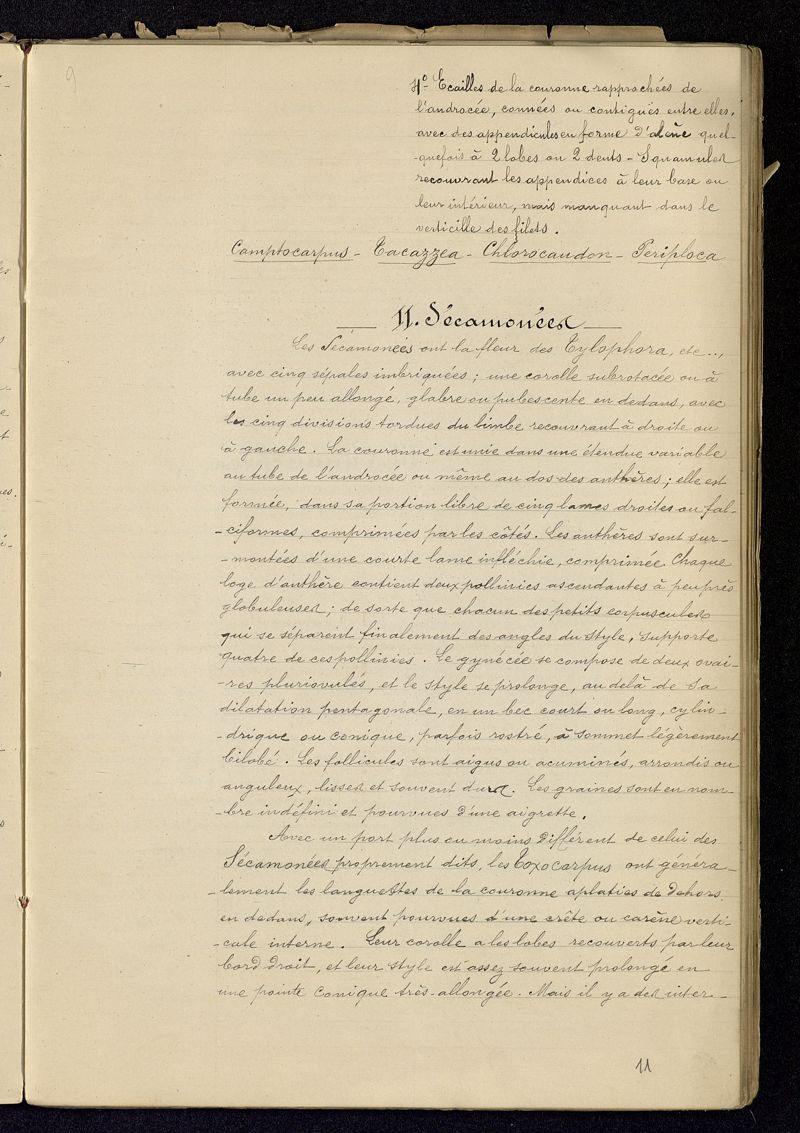 9
4º Ecailles de la couronne rapprochées de
l'androcée, connées ou contiguës entre elles,
avec des appendicules en forme d'alène quel-
-quefois à 2 lobes ou 2 dents - Squamules
recouvrant les appendices à leur base ou
leur intérieur, mais manquant dans le
verticille des filets.
Camptocarpus - Tacazzea - Chlorocaudon - Periploca
II. Sécamonées
Les Sécamonées ont la fleur des Tylophora, etc..,
avec cinq sépales imbriquées ; une corolle subrotacée ou à
tube un peu allongé, glabre ou pubescente en dedans, avec
les cinq divisions tordues du limbe recouvrant à droite ou
à gauche. La couronne est unie dans une étendue variable
au tube de l'androcée ou même au dos des anthères ; elle est
formée, dans sa portion libre de cinq lames droites ou fal-
-ciformes, comprimées par les côtés. Les anthères sont sur-
-montées d'une courte lame infléchie, comprimée. Chaque
loge d'anthère contient deux pollinies ascendantes à peu près
globuleuses ; de sorte que chacun des petits corpuscules
qui se séparent finalement des angles du style, supporte
quatre de ces pollinies. Le gynécée se compose de deux ovai-
-res pluriovulés, et le style se prolonge, au delà de sa
dilatation pentagonale, en un bec court ou long, cylin-
-drique ou conique, parfois rostré, à sommet légèrement
bilobé. Les follicules sont aigus ou acuminés, arrondis ou
anguleux, lisses et souvent durs. Les graines sont en nom-
-bre indéfini et pourvues d'une aigrette.
Avec un port plus ou moins différent de celui des
Sécamonées proprement dits, les Toxocarpus ont généra-
-lement les languettes de la couronne aplaties de dehors
en dedans, souvent pourvues d'une crête ou carène verti-
-cale interne. Leur corolle a les lobes recouverts par leur
bord droit, et leur style est assez souvent prolongé en
une pointe conique très-allongée. Mais il y a des inter-
11